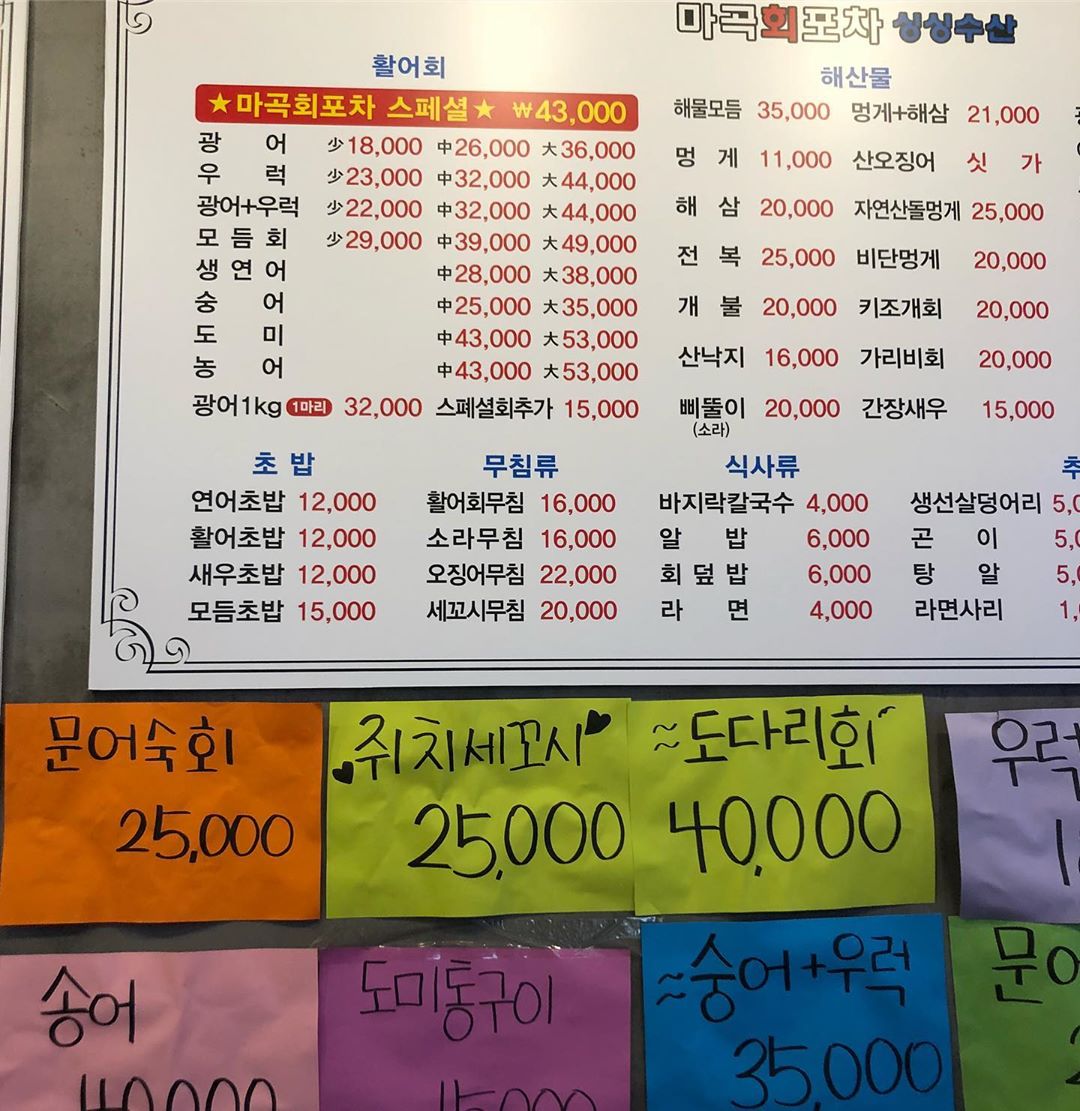 마곡회포차 싱싱수산
활어회
★마곡회포차 스페셜★ ₩43,000
광 어 少18,000 中26,000 大36,000
우 럭 少23,000 中32,000 大44,000
광어+우럭 少22,000 中32,000 大44,000
모 듬 회 少29,000 中39,000 大49,000
생 연 어 中28,000 大38,000
숭 어 中25,000 大35,000
도 미 中43,000 大53,000
농 어 中43,000 大53,000
광어1kg 1마리 32,000 스페셜회추가 15,000
해산물
해물모듬 35,000 멍게+해삼 21,000
멍 게 11,000 산오징어 싯 가
해 삼 20,000 자연산돌멍게 25,000
전 복 25,000 비단멍게 20,000
개 불 20,000 키조개회 20,000
산낙지 16,000 가리비회 20,000
삐뚤이 20,000 간장새우 15,000
(소라)
초 밥
연어초밥 12,000
활어초밥 12,000
새우초밥 12,000
모듬초밥 15,000
무침류
활어회무침 16,000
소라무침 16,000
오징어무침 22,000
세꼬시무침 20,000
식사류
바지락칼국수 4,000
알 밥 6,000
회 덮 밥 6,000
라 면 4,000
생선살덩어리
곤 이
탕 알
라면사리
문어숙회
25,000
쥐치세꼬시
25,000
~도다리회~
40,000
우럭
송어
40,000
도미통구이
15,000
~숭어+우럭
35,000